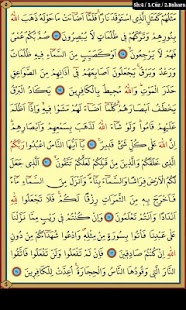 Shf:4 / 1.Cüz / 2.Bakara
مَثَلُهُمْ كَمَثَلِ الَّذِي اسْتَوْقَدَ نَارًا فَلَمَّا أَضَاءَتْ مَا حَوْلَهُ ذَهَبَ اللَّهُ
بِنُورِهِمْ وَتَرَكَهُمْ فِي ظُلُمَاتٍ لَا يُبْصِرُونَ صُمٌّ بُكْمٌ عُمْيٌ
فَهُمْ لَا يَرْجِعُونَ أَوْ كَصَيِّبٍ مِنَ السَّمَاءِ فِيهِ ظُلُمَاتٌ
وَرَعْدٌ وَبَرْقٌ يَجْعَلُونَ أَصَابِعَهُمْ فِي آذَانِهِمْ مِنَ الصَّوَاعِقِ
حَذَرَ الْمَوْتِ وَاللَّهُ مُحِيطٌ بِالْكَافِرِينَ يَكَادُ الْبَرْقُ
يَخْطَفُ أَبْصَارَهُمْ كُلَّمَا أَضَاءَ لَهُمْ مَشَوْا فِيهِ وَإِذَا أَظْلَمَ عَلَيْهِمْ
قَامُوا وَلَوْ شَاءَ اللَّهُ لَذَهَبَ بِسَمْعِهِمْ وَأَبْصَارِهِمْ
إِنَّ اللَّهَ عَلَى كُلِّ شَيْءٍ قَدِيرٌ يَا أَيُّهَا النَّاسُ اعْبُدُوا رَبَّكُمُ
الَّذِي خَلَقَكُمْ وَالَّذِينَ مِنْ قَبْلِكُمْ لَعَلَّكُمْ تَتَّقُونَ الَّذِي جَعَلَ
لَكُمُ الْأَرْضَ فِرَاشًا وَالسَّمَاءَ بِنَاءً وَأَنْزَلَ مِنَ السَّمَاءِ مَاءً
فَأَخْرَجَ بِهِ مِنَ الثَّمَرَاتِ رِزْقًا لَكُمْ فَلَا تَجْعَلُوا لِلَّهِ
أَنْدَادًا وَأَنْتُمْ تَعْلَمُونَ وَإِنْ كُنْتُمْ فِي رَيْبٍ مِمَّا نَزَّلْنَا
عَلَى عَبْدِنَا فَأْتُوا بِسُورَةٍ مِنْ مِثْلِهِ وَادْعُوا شُهَدَاءَكُمْ مِنْ دُونِ
اللَّهِ إِنْ كُنْتُمْ صَادِقِينَ فَإِنْ لَمْ تَفْعَلُوا وَلَنْ تَفْعَلُوا فَاتَّقُوا
النَّارَ الَّتِي وَقُودُهَا النَّاسُ وَالْحِجَارَةُ أُعِدَّتْ لِلْكَافِرِينَ